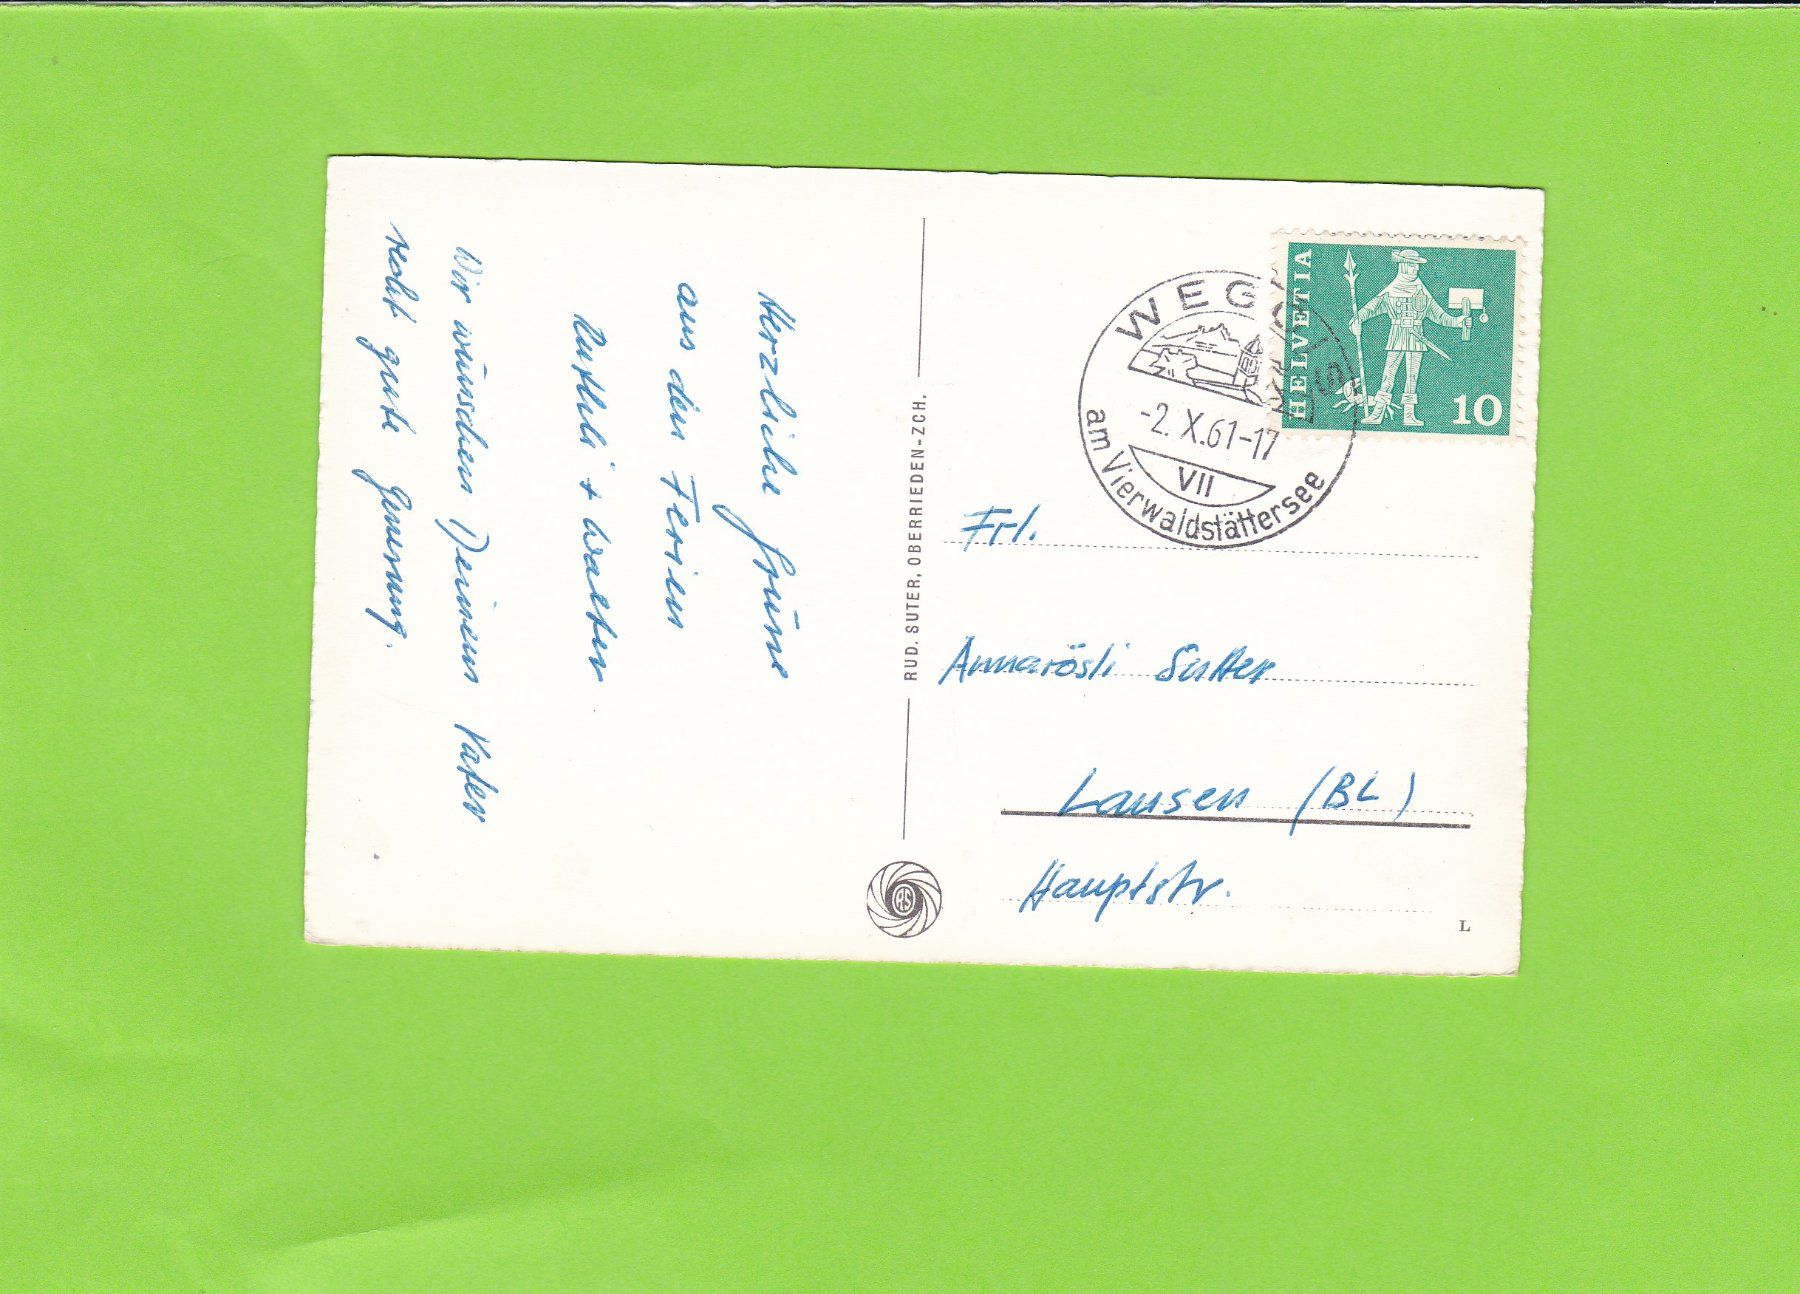 Herzliche Grüsse
aus den Ferien
Ruthli + Walter
Wir wünschen Deinem Vater
recht gute Genesung.
RUD. SUTER, OBERRIEDEN-ZCH.
RS
WEGGIS
-2.X.61-17
VII
am Vierwaldstättersee
HELVETIA
10
Frl.
Annarösli Sutter
Lausen (BL)
Hauptstr.
L